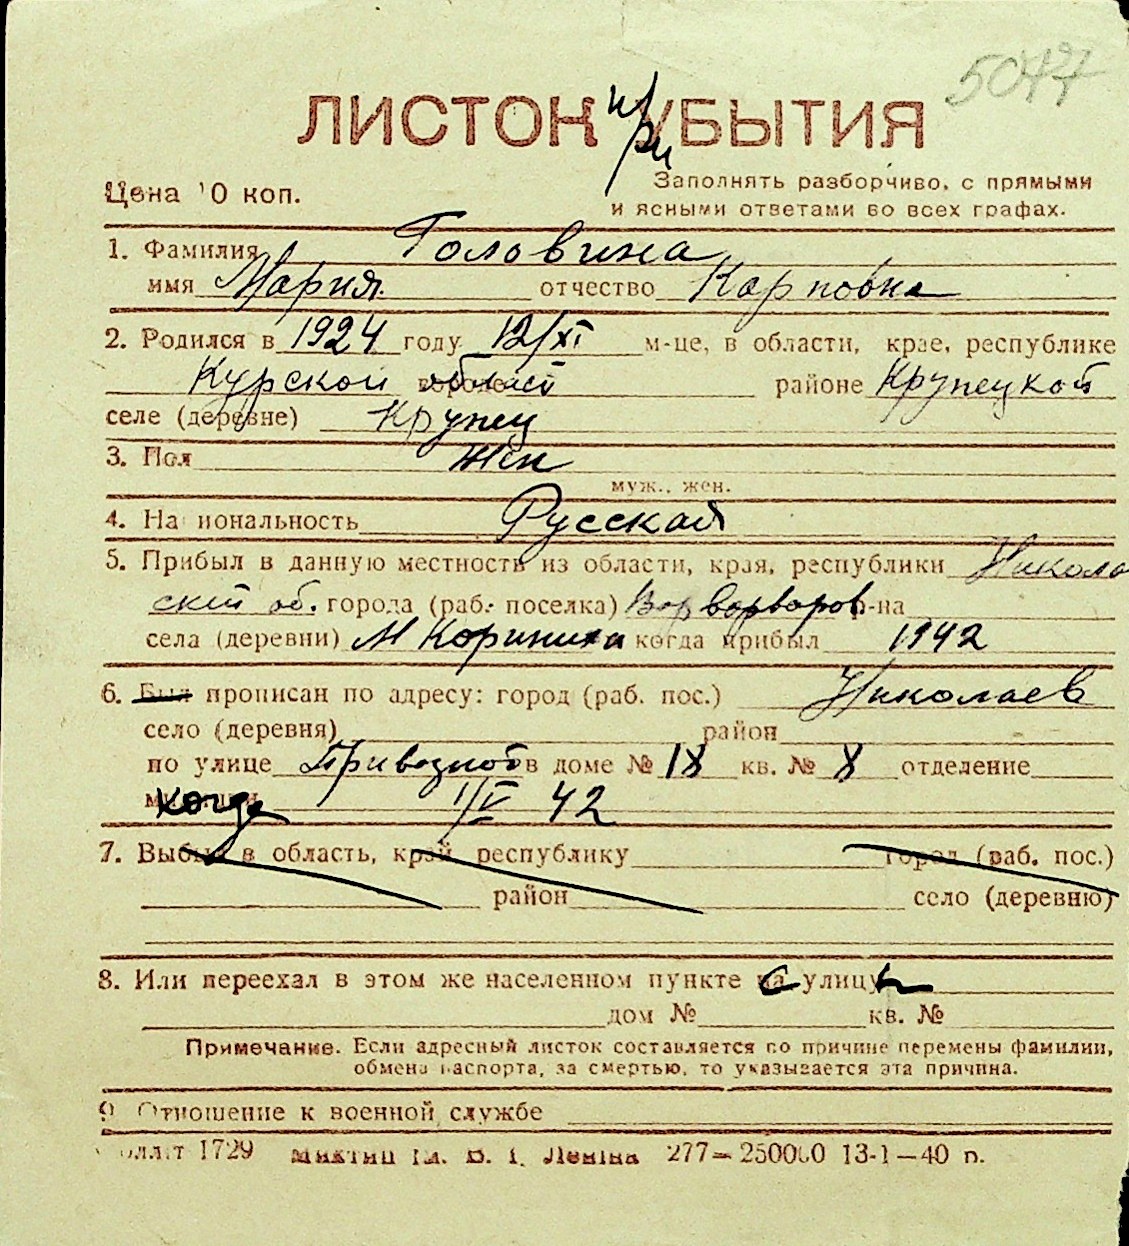 5077
ЛИСТОК при УБЫТИЯ
Цена 10 коп.
Заполнять разборчиво, с прямыми
и ясными ответами во всех графах.
1. Фамилия Головина
имя Мария отчество Карповна
2. Родился в 1924 году 12/XI м-це, в области, крае, республике
Курской области районе Крупецкой
селе (деревне) Крупец
3. Пол жен
муж., жен.
4. Национальность Русская
5. Прибыл в данную местность из области, края, республики Никола
ской об. города (раб. поселка) Варваров р-на
села (деревни) М Корениха когда прибыл 1942
6. Был прописан по адресу: город (раб. пос.) Николаев
село (деревня) район
по улице Привозной в доме № 18 кв. № 8 отделение
когда 1/V 42
7. Выбыл в область, край, республику город (раб. пос.)
район село (деревню)
8. Или переехал в этом же населенном пункте с улицы
дом № кв. №
Примечание. Если адресный листок составляется по причине перемены фамилии,
обмена паспорта, за смертью, то указывается эта причина.
9. Отношение к военной службе
1729 277—250000 13-1—40 р.